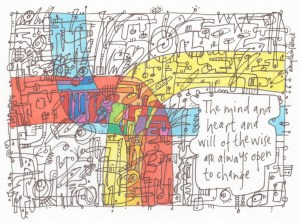 The mind and
heart and
will of the wise
are always open
to change